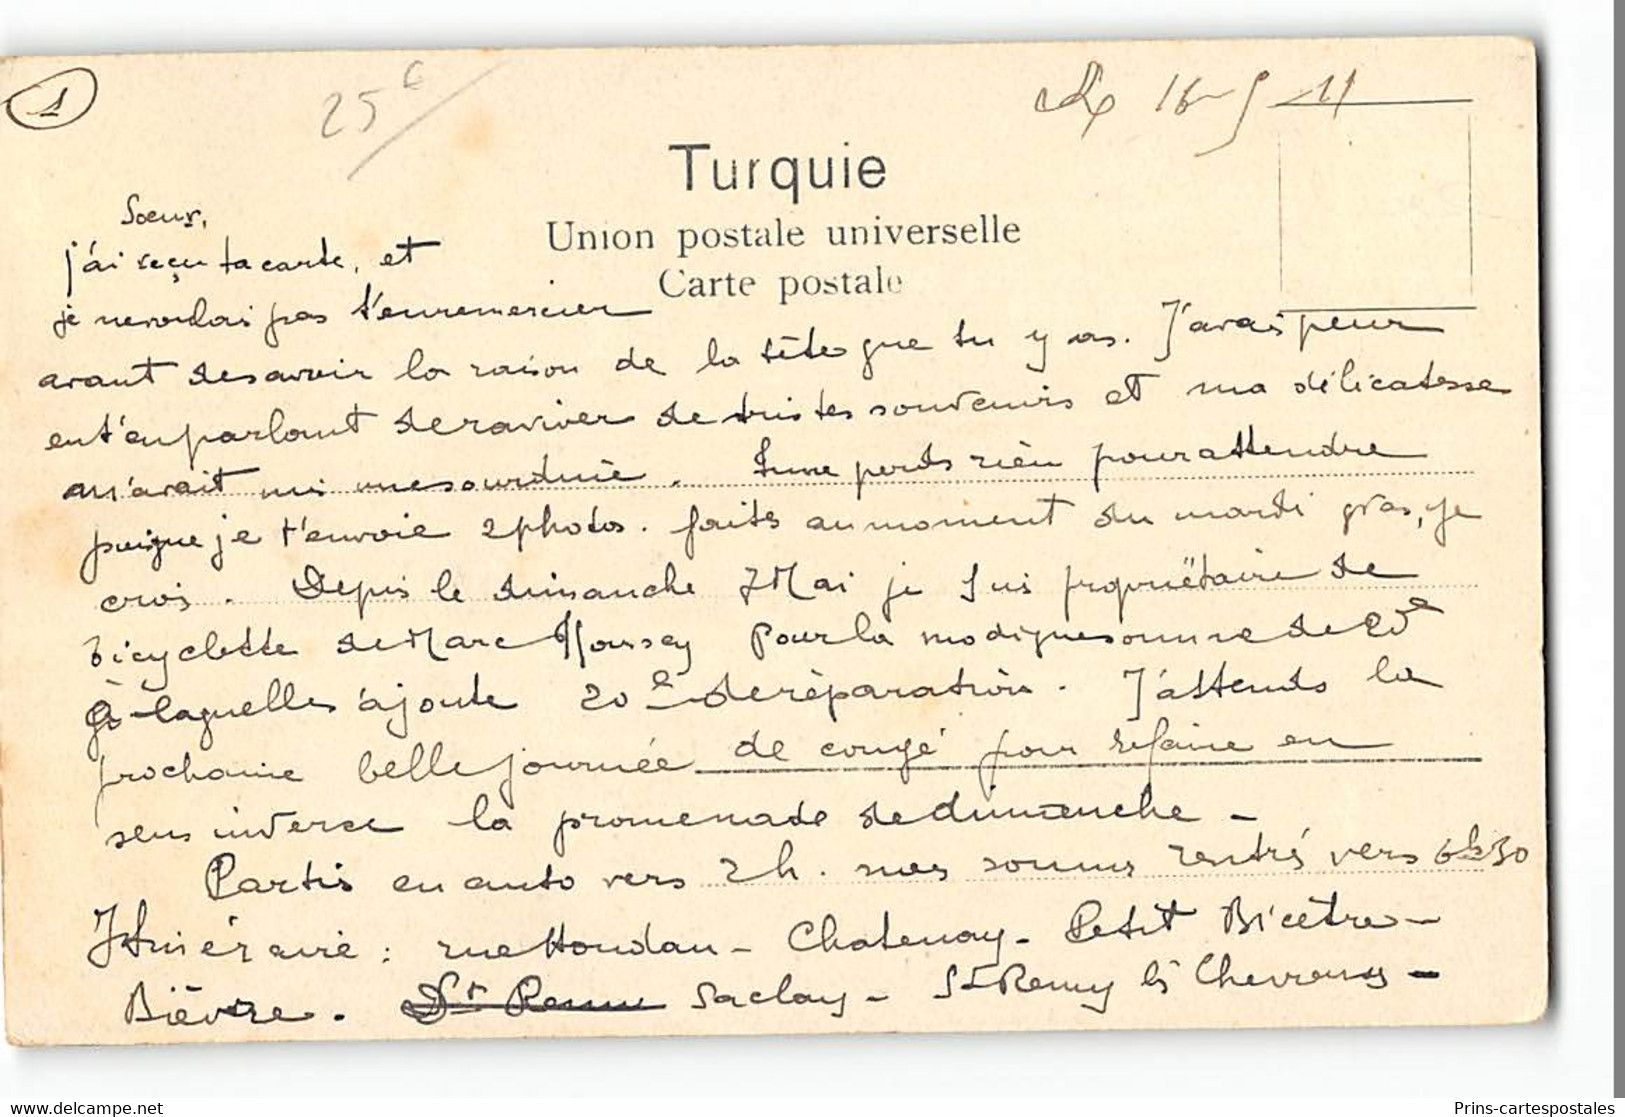 1
25 c
R 16-5-11
Turquie
Union postale universelle
Carte postale
Soeur,
j'ai reçu ta carte, et
je ne voulais pas t'en remercier
avant de savoir la raison de la tête que tu y as. J'avais peur
en t'en parlant de raviver de tristes souvenirs et ma délicatesse
m'avait mis une sourdine. Tu ne perds rien pour attendre
puisque je t'envoie 2 photos. faites au moment du mardi gras, je
crois. Depuis le dimanche 7 Mai je suis propriétaire de
bicyclette de Marc Houssey pour la modique somme de
à laquelle s'ajoute 20 de réparation. J'attends la
prochaine belle journée de congé pour refaire en
sens inverse la promenade de dimanche -
Partis en auto vers 2h. nous sommes rentrés vers 6h30
Itinéraire : rue Houdan - Chatenay - Petit Bicêtre -
Bièvre. Saclay - St Remy lès Chevreuse -
Prins-cartespostales.com
Prins-cartespostales